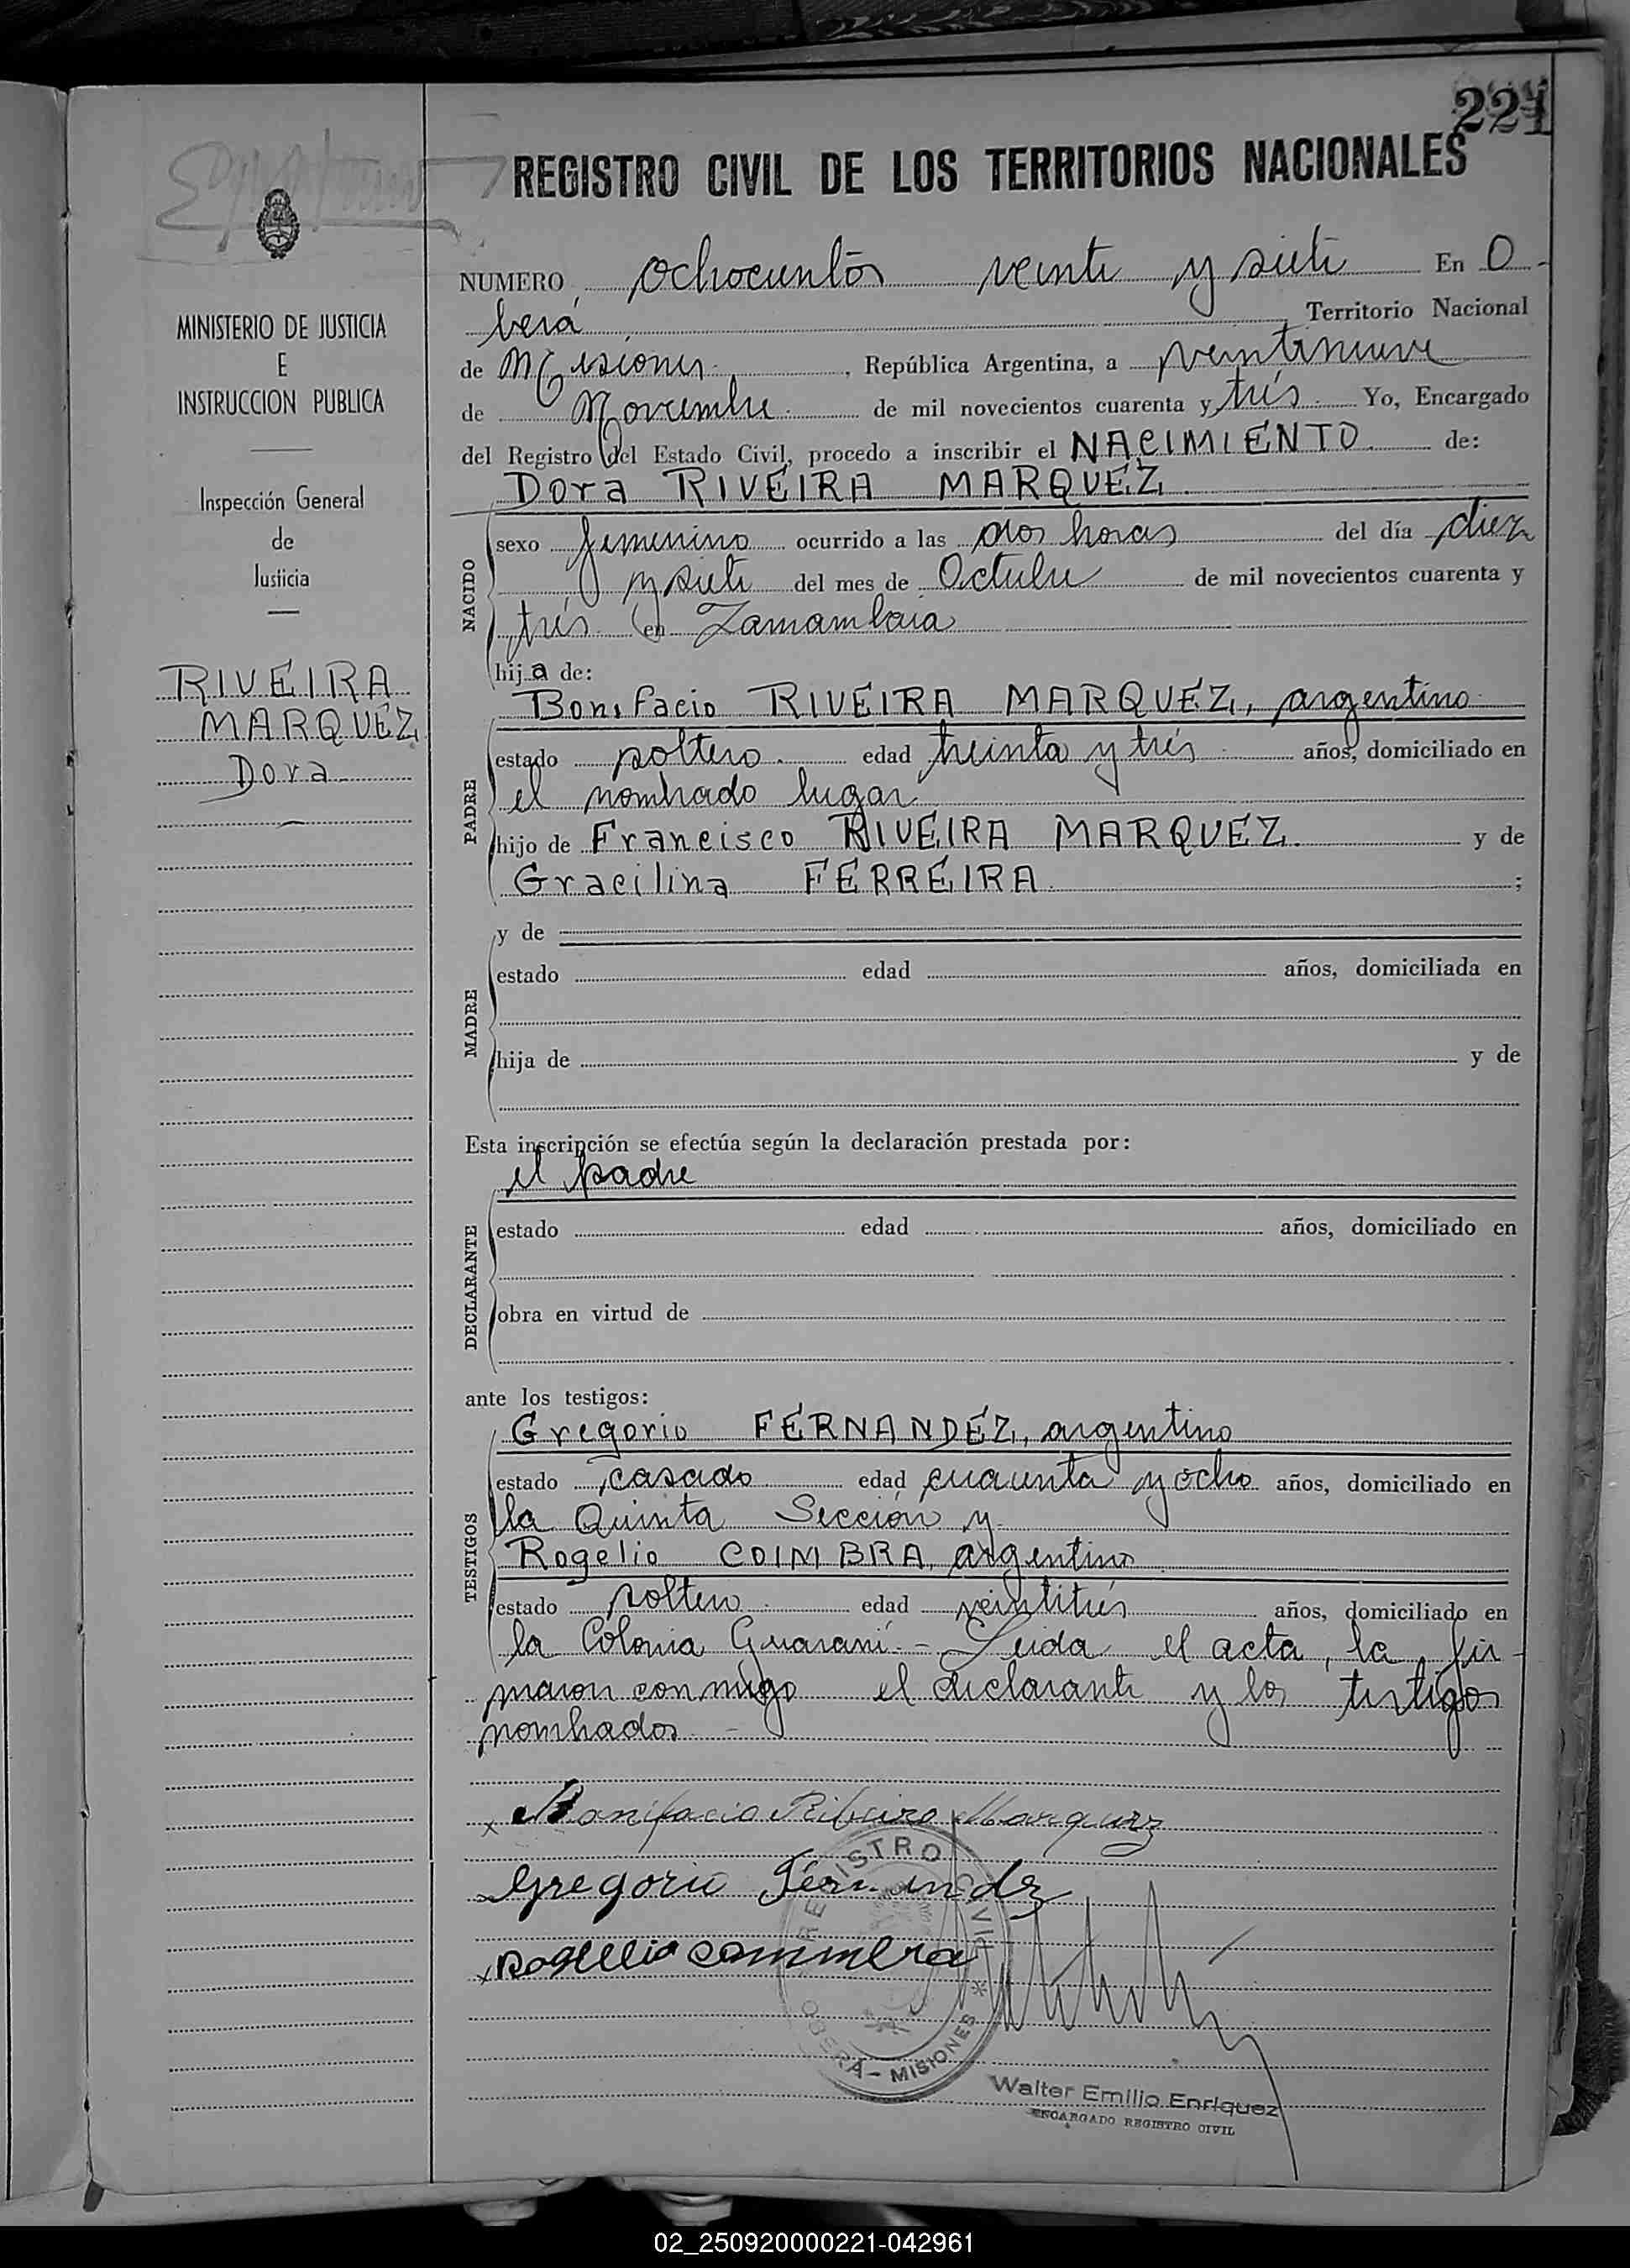 221
REGISTRO CIVIL DE LOS TERRITORIOS NACIONALES
NUMERO ochocientos veinte y siete En O-
berá Territorio Nacional
de Misiones, República Argentina, a veintinueve
de Noviembre de mil novecientos cuarenta y trés. Yo, Encargado
del Registro del Estado Civil, procedo a inscribir el NACIMIENTO de:
Dora RIVEIRA MARQUEZ
NACIDO
sexo femenino ocurrido a las dos horas del día diez
y siete del mes de Octubre de mil novecientos cuarenta y
trés en Zamambaia
hija de:
PADRE
Bonifacio RIVEIRA MARQUEZ, argentino
estado soltero edad treinta y trés años, domiciliado en
el nombrado lugar
hijo de Francisco RIVEIRA MARQUEZ y de
Gracilina FERREIRA ;
MADRE
y de
estado edad años, domiciliada en
hija de y de
Esta inscripción se efectúa según la declaración prestada por:
el padre
DECLARANTE
estado edad años, domiciliado en
obra en virtud de
ante los testigos:
TESTIGOS
Gregorio FERNANDEZ, argentino
estado casado edad cuarenta y ocho años, domiciliado en
la Quinta Sección y
Rogelio COIMBRA, argentino
estado soltero edad veintitrés años, domiciliado en
la Colonia Guaraní.- Leida el acta, la fir-
maron conmigo el declarante y los testigos
nombrados.-
x Bonifacio Ribeiro Marquez
Gregorio Fernandz
x Rogelio
REGISTRO CIVIL
OBERA - MISIONES *
Walter Emilio Enriquez
ENCARGADO REGISTRO CIVIL
MINISTERIO DE JUSTICIA
E
INSTRUCCION PUBLICA
Inspección General
de
Justicia
RIVEIRA
MARQUEZ
Dora
02_250920000221-042961